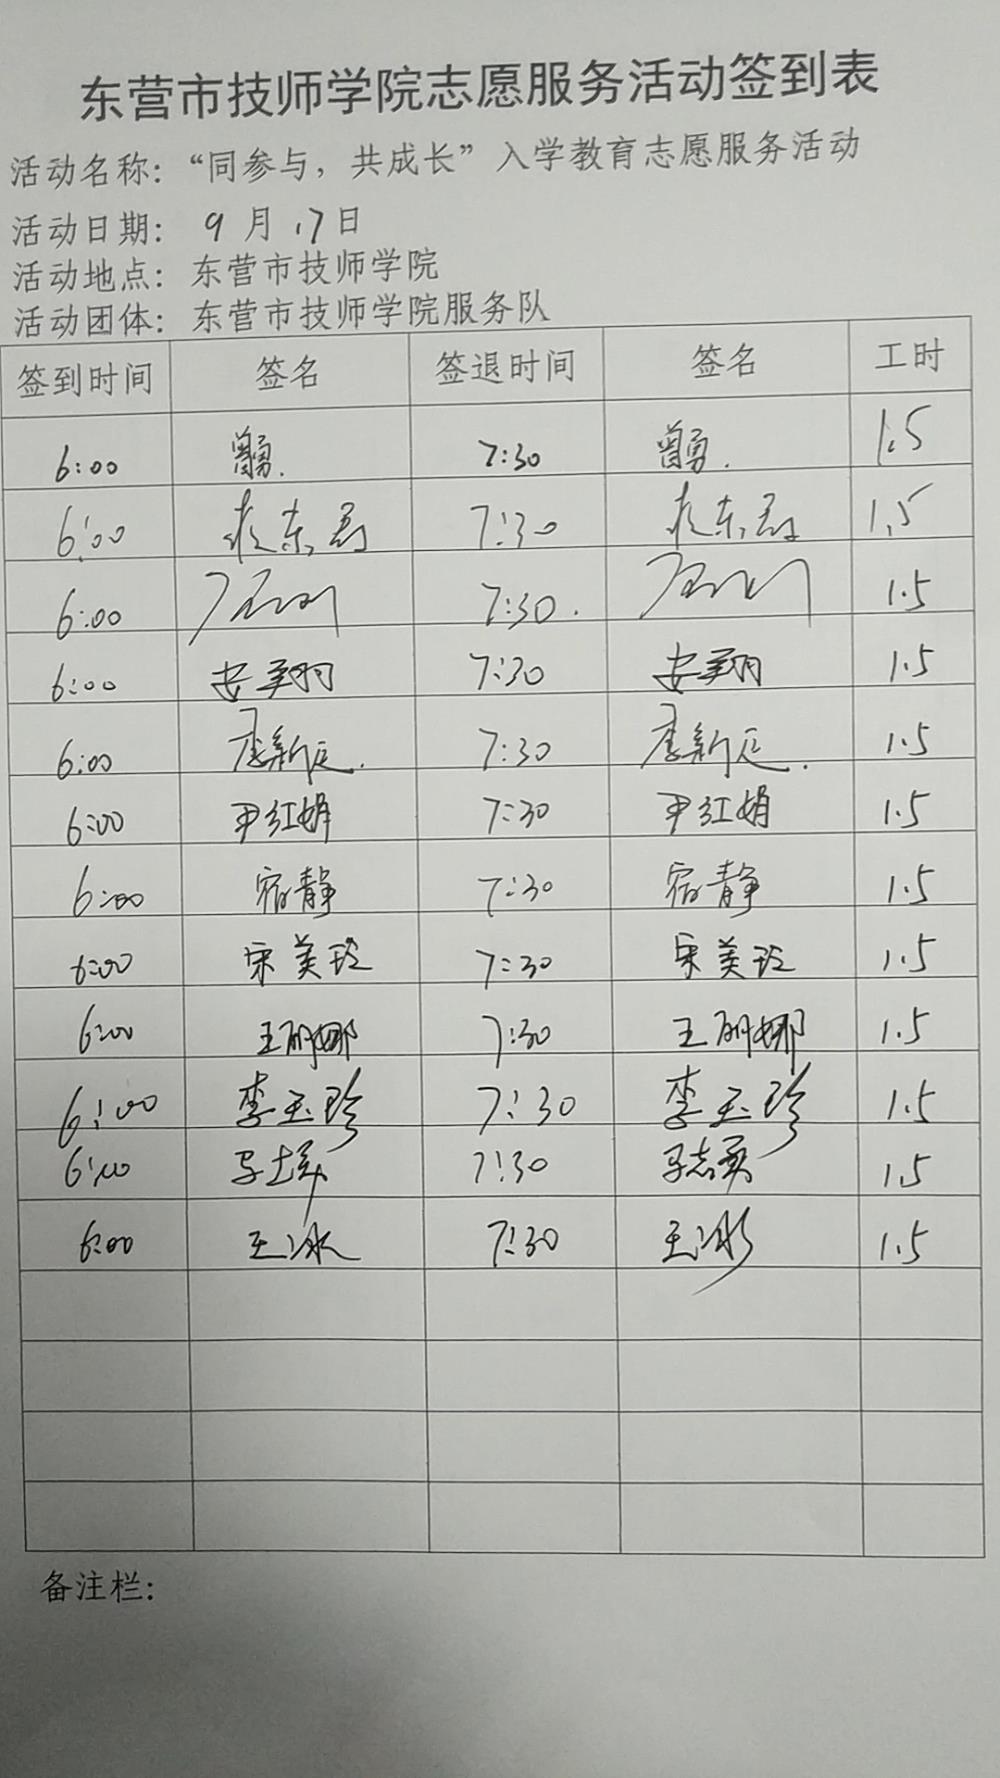 东营市技师学院志愿服务活动签到表
活动名称：“同参与，共成长”入学教育志愿服务活动
活动日期： 9 月 17日
活动地点： 东营市技师学院
活动团体： 东营市技师学院服务队
签到时间 签名 签退时间 签名 工时
6:00 曾勇. 7:30 曾勇. 1.5
6:00 7:30 1.5
6:00 7:30. 1.5
6:00 安翔 7:30 安翔 1.5
6:00 7:30 1.5
6:00 尹红娟 7:30 尹红娟 1.5
6:00 宿静 7:30 宿静 1.5
6:00 宋美玲 7:30 宋美玲 1.5
6:00 王丽娜 7:30 王丽娜 1.5
6:00 李玉珍 7:30 李玉珍 1.5
6:00 7:30 1.5
6:00 王冰 7:30 王冰 1.5
备注栏：